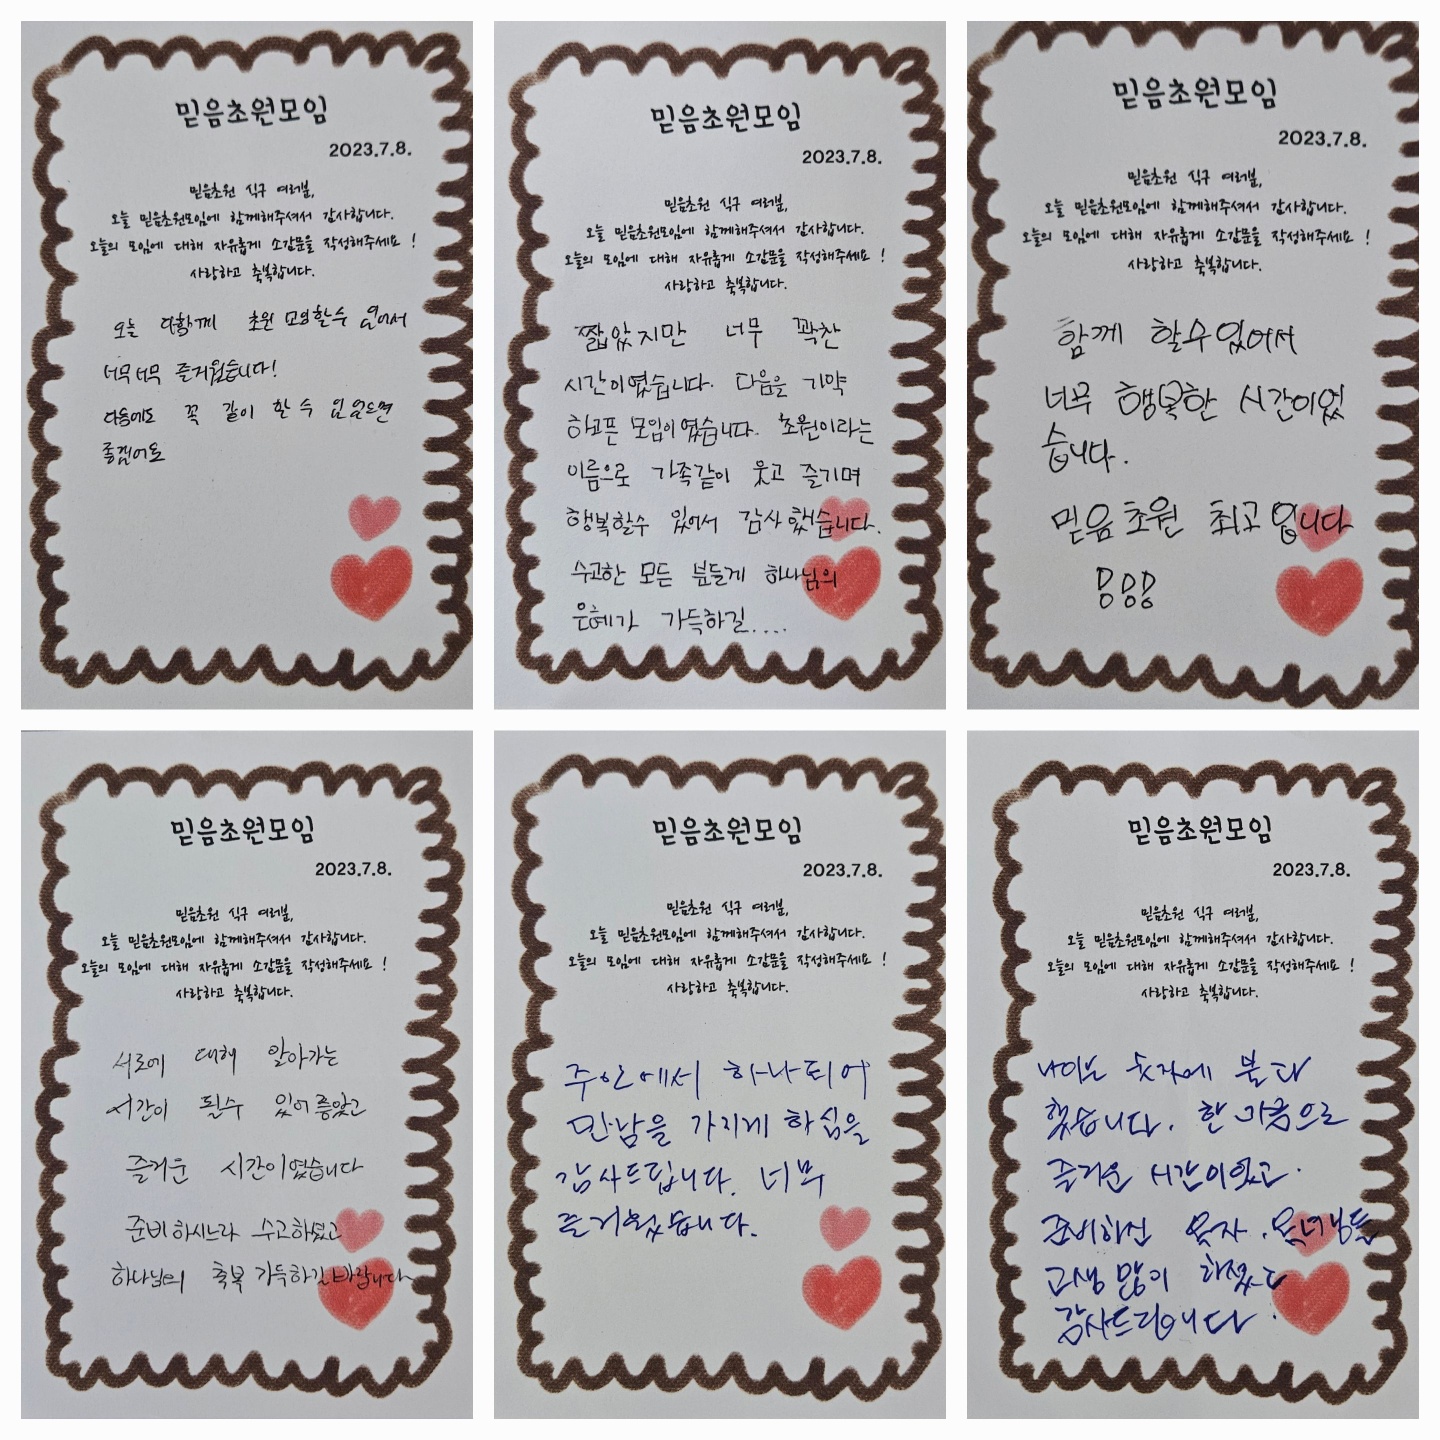 믿음초원모임
2023.7.8.
믿음초원 식구 여러분,
오늘 믿음초원모임에 함께해주셔서 감사합니다.
오늘의 모임에 대해 자유롭게 소감문을 작성해주세요 !
사랑하고 축복합니다.
오늘 다함께 초원 모임할수 있어서
너무너무 즐거웠습니다!
다음에도 꼭 같이 할 수 있었으면
좋겠어요
믿음초원모임
2023.7.8.
믿음초원 식구 여러분,
오늘 믿음초원모임에 함께해주셔서 감사합니다.
오늘의 모임에 대해 자유롭게 소감문을 작성해주세요 !
사랑하고 축복합니다.
짧았지만 너무 꽉찬
시간이였습니다. 다음을 기약
하고픈 모임이였습니다. 초원이라는
이름으로 가족같이 웃고 즐기며
행복할수 있어서 감사했습니다.
수고한 모든 분들게 하나님의
은혜가 가득하길....
믿음초원모임
2023.7.8.
믿음초원 식구 여러분,
오늘 믿음초원모임에 함께해주셔서 감사합니다.
오늘의 모임에 대해 자유롭게 소감문을 작성해주세요 !
사랑하고 축복합니다.
함께 할수있어서
너무 행복한 시간이었
습니다.
믿음초원 최고 입니다
믿음초원모임
2023.7.8.
믿음초원 식구 여러분,
오늘 믿음초원모임에 함께해주셔서 감사합니다.
오늘의 모임에 대해 자유롭게 소감문을 작성해주세요 !
사랑하고 축복합니다.
서로에 대해 알아가는
시간이 될수 있어 좋았고
즐거운 시간이였습니다
준비하시느라 수고하셨고
하나님의 축복 가득하길 바랍니다
믿음초원모임
2023.7.8.
믿음초원 식구 여러분,
오늘 믿음초원모임에 함께해주셔서 감사합니다.
오늘의 모임에 대해 자유롭게 소감문을 작성해주세요 !
사랑하고 축복합니다.
주안에서 하나되어
만남을 가지게 하심을
감사드립니다. 너무
즐거웠습니다.
믿음초원모임
2023.7.8.
믿음초원 식구 여러분,
오늘 믿음초원모임에 함께해주셔서 감사합니다.
오늘의 모임에 대해 자유롭게 소감문을 작성해주세요 !
사랑하고 축복합니다.
나이는 숫자에 불과
했습니다. 한 마음으로
즐거운 시간이었고.
준비하신 목자. 목녀님들
고생 많이 하셨고
감사드립니다.